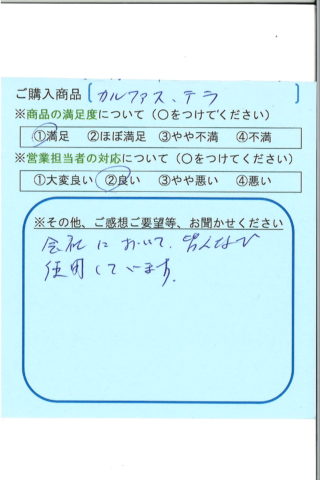 ご購入商品 [カルファス、テラ]
※商品の満足度について（○をつけてください）
①満足 ②ほぼ満足 ③やや不満 ④不満
※営業担当者の対応について（○をつけてください）
①大変良い ②良い ③やや悪い ④悪い
※その他、ご感想ご要望等、お聞かせください
会社において、皆んなで
使用しています。